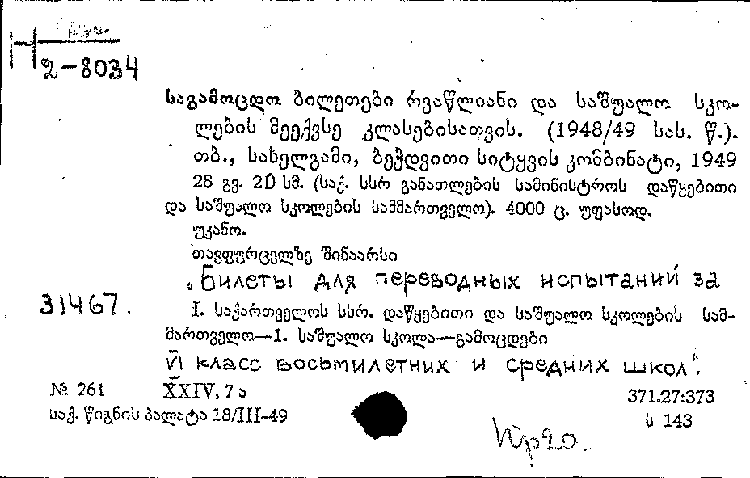 2-8034
საგამოცდო ბილეთები რვაწლიანი და საშუალო სკო-
ლების მეექვსე კლასებისათვის. (1948/49 სას. წ.).
თბ., სახელგამი, ბეჭდვითი სიტყვის კომბინატი, 1949
28 გვ. 20 სმ. (საქ. სსრ განათლების სამინისტროს დაწყებითი
და საშუალო სკოლების სამმართველო). 4000 ც. უფასოდ.
უკანო.
თავფურცელზე შინაარსი
„Билеты для переводных испытаний за
31467.
I. საქართველოს სსრ. დაწყებითი და საშუალო სკოლების სამ-
მართველო—1. საშუალო სკოლა—გამოცდები
VI класс восьмилетних и средних школ".
№ 261 XXIV, 7ა 371.27:373
საქ. წიგნის პალატა 18/III-49 ს 143